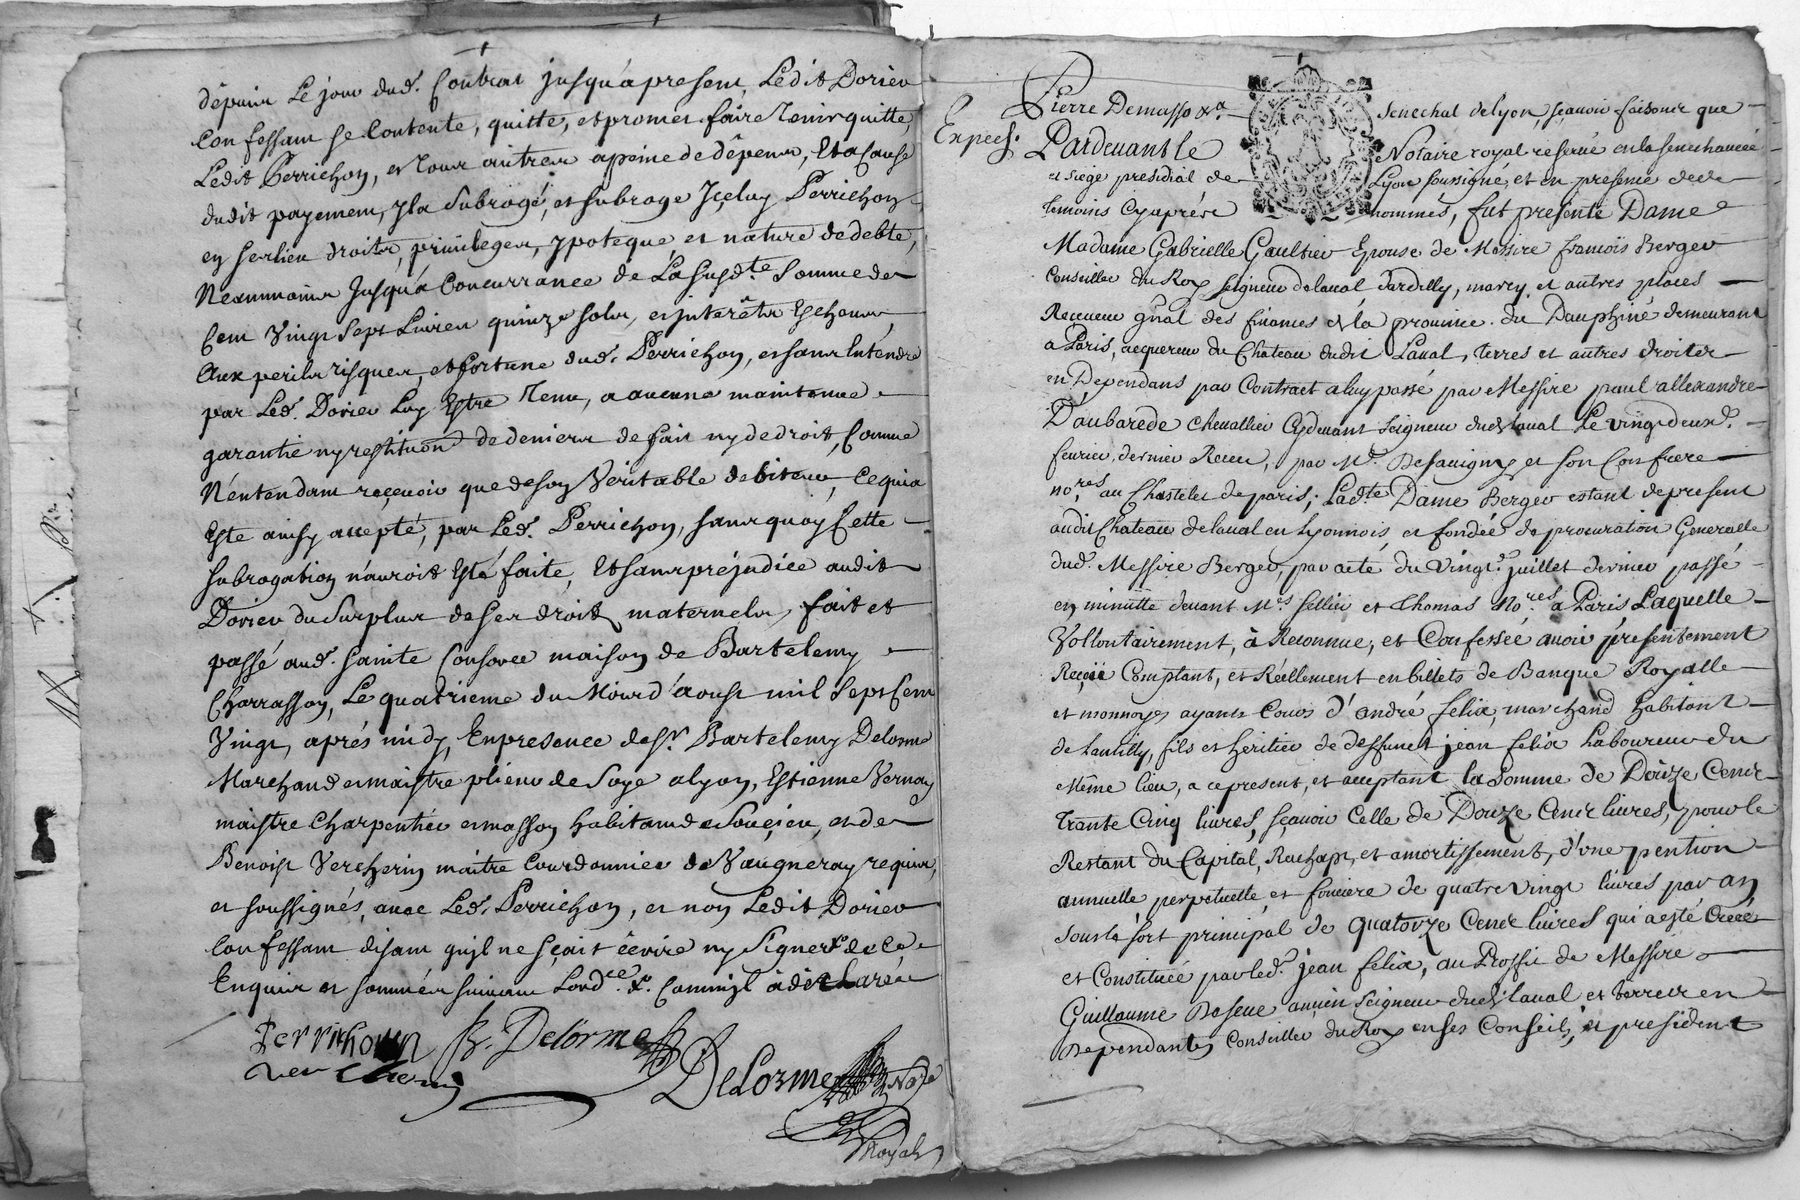 dépuis Le jour dud. Contrat jusqu'a present, Ledit Dorier
Confessant se Contente, quitte, et promet faire Tenir quitte,
Ledit Perrichon, et Tous autres a peine de dêpens, Et a Cause
dudit payement, Il a Subrogé, et subroge Içeluy Perrichon
en ses lieu droits, privileges, ypoteque, et nature de debte,
Neanmoins Jusqu'a Concurrance de La susd.te Somme de
Cent Vingt Sept Livres quinze sols, et interêts Eschous,
Aux perils risques, et fortune dud. Perrichon, et sans Intendre
par Led. Dorier Luy Estre Tenu, a aucune maintenue
garantie ny restitution de deniers de fait ny de droit, Comme
N'entendant reçevoir que de son Veritable debiteur, Ce qui a
Esté ainsy accepté, par Led. Perrichon, sans quoy Cette
subrogation n'auroit Esté faite, Et sans préjudice audit
Dorier du Surplus de ses droits maternels, fait et
passé aud. Sainte Consorce maison de Bartelemy
Charrasson, Le quatrieme du Mois d'aoust mil Sept Cent
Vingt, aprés midy, En presence de Sr. Bartelemy Delorme
Marchand et maistre plieur de Soye a Lyon, Estienne Vernay
maistre Charpentier et masson habitant de Souçieu, et de
Benoist Vercherin maitre Courdonnier de Vaugneray requis,
et soussignés, avec Led. Perrichon, et non Ledit Dorier
Confessant disant qu'il ne sçait écrire ny Signer de ce
Enquis et sommés suivant L'ord.ce Comm'il a déclaré
Perrichoun B. Delorme
vercherin
DeLorme No.re
Royal
Pierre Demasso
Senechal de Lyon, sçavoir faisons que
Expedi.
Pardevant le
Notaire royal reservé en la senechaucée
et siege presidial de
Lyon soussigné, et en presence des
temoins Cy aprés
nommés, fut presente Dame
Madame Gabrielle Gaultier Epouse de Messire françois Berger
Conseiller du Roy Seigneur de laval Dardilly, marcy, et autres places
Receveur g'nâl des finances de la province du Dauphiné demeurant
a Paris, acquereur du Chateau dudit Laval, terres et autres droits
en Dependans par Contract a luy passé par Messire paul allexandre
D'aubarede chevallier Cydevant Seigneur dud. laval Le vingt deux.
fevrier dernier Receu, par Me. Desavigny et son Confrere
no.res au Chastelet de paris; Lad.te Dame Berger estant de present
audit Chateau de laval en Lyonnois, et fondée de procuration Generalle
dud. Messire Berger, par acte du Vingt. juillet dernier passé
en minutte devant M.es sellier et Thomas No.res a Paris Laquelle
Vollontairement, à Reconnue, et Confessée avoir presentement
Reçeu Comptant, et Réellement en billets de Banque Royalle
et monnoyes ayants Cours d'andré felix, marchand habitant
de Lantilly, fils et heritier de deffunct jean felix Laboureur du
Même lieu, a ce present, et acceptant la somme de Douze Cents
Trante Cinq livres, sçavoir Celle de Douze Cents livres, pour le
Restant du Capital, Rachapt, et amortissement, d'une pention
annuelle perpetuelle et fonciere de quatre vingt livres par an
sous le sort principal de quatorze Cents livres qui a esté Creée
et Constituée par led. jean felix, au Proffit de Messire
Guillaume Deseve ancien Seigneur dud. laval et terres en
Dependantes Conseiller du Roy en ses Conseils, et president